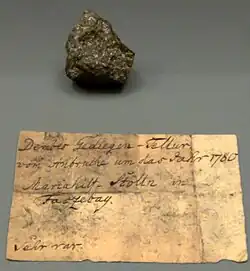 Derbes Gediegen-Tellur
vom Anbruche um das Jahr 1780
Mariahilf-Stolln in
Faczebay.
Sehr rar.